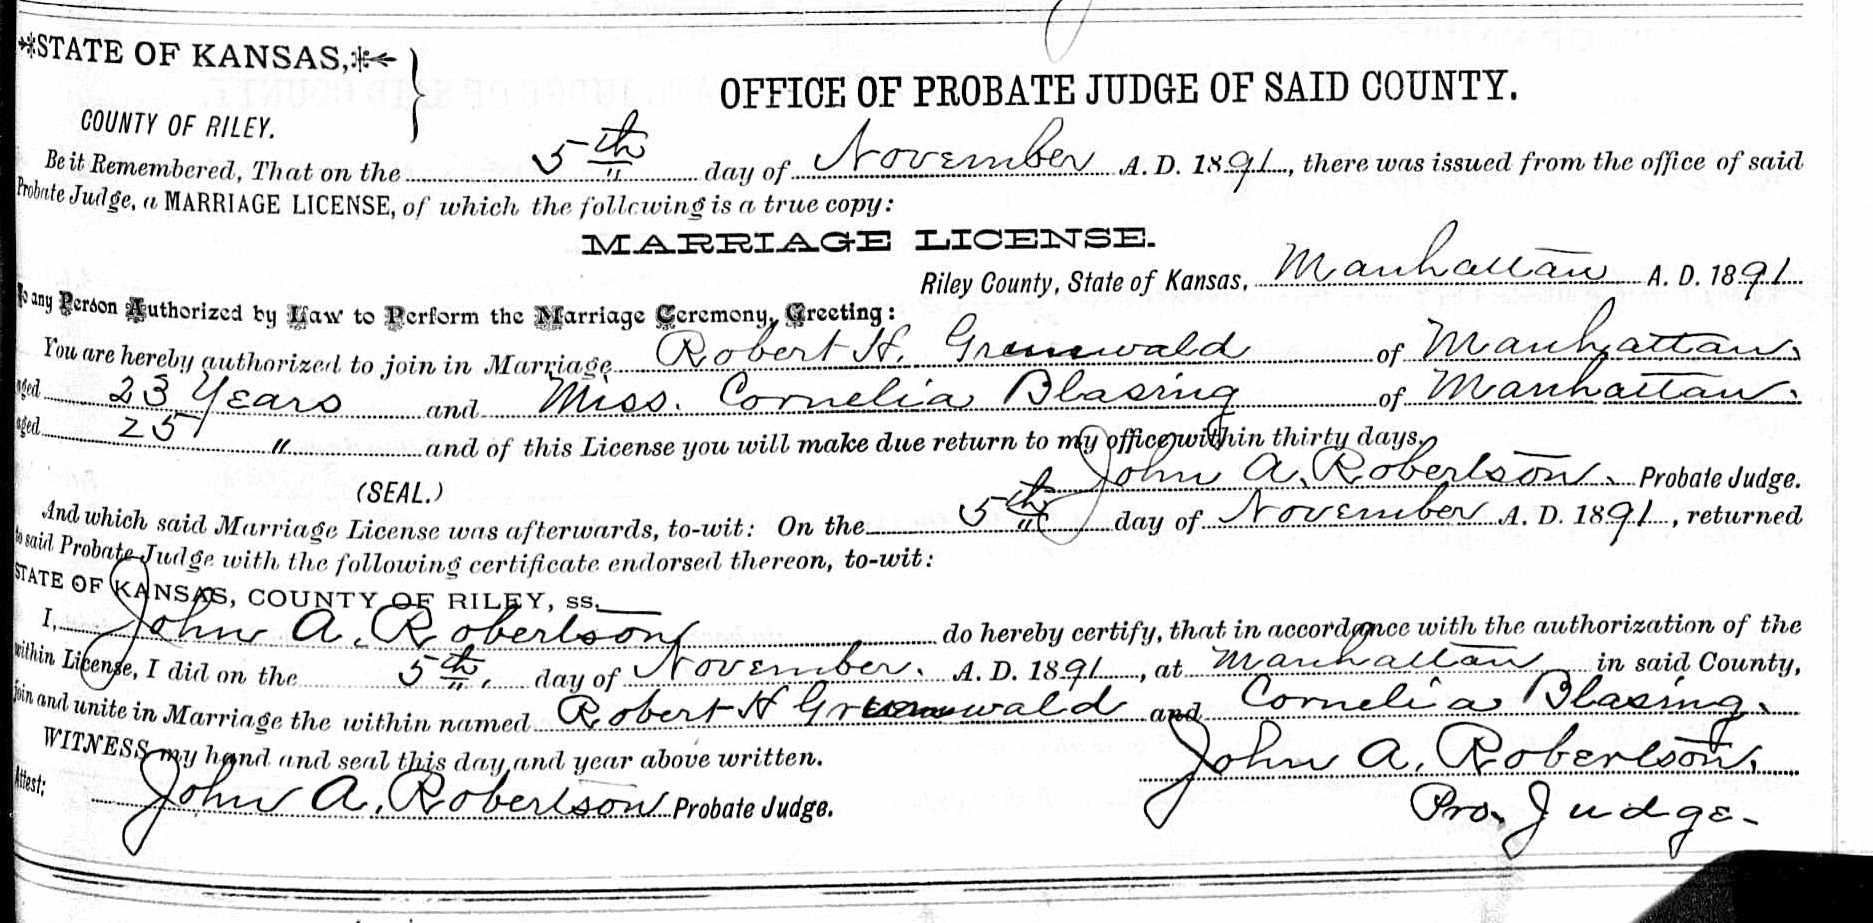 STATE OF KANSAS,
COUNTY OF RILEY.
OFFICE OF PROBATE JUDGE OF SAID COUNTY.
Be it Remembered, That on the 5th day of November A. D. 1891, there was issued from the office of said
Probate Judge, a MARRIAGE LICENSE, of which the following is a true copy:
MARRIAGE LICENSE.
Riley County, State of Kansas, Manhattan A. D. 1891
To any Person Authorized by Law to Perform the Marriage Ceremony, Greeting:
You are hereby authorized to join in Marriage Robert H. Grunewald of Manhattan,
aged 23 Years and Miss. Cornelia Blasing of Manhattan.
aged 25 " and of this License you will make due return to my office within thirty days.
John A. Robertson. Probate Judge.
(SEAL.)
And which said Marriage License was afterwards, to-wit: On the 5th day of November A. D. 1891, returned
to said Probate Judge with the following certificate endorsed thereon, to-wit:
STATE OF KANSAS, COUNTY OF RILEY, ss.
I, John A. Robertson do hereby certify, that in accordance with the authorization of the
within License, I did on the 5th. day of November. A. D. 1891, at Manhattan in said County,
join and unite in Marriage the within named Robert H Grunewald and Cornelia Blasing.
WITNESS my hand and seal this day and year above written.
John A. Robertson.
Attest: John A. Robertson Probate Judge.
Pro. Judge-